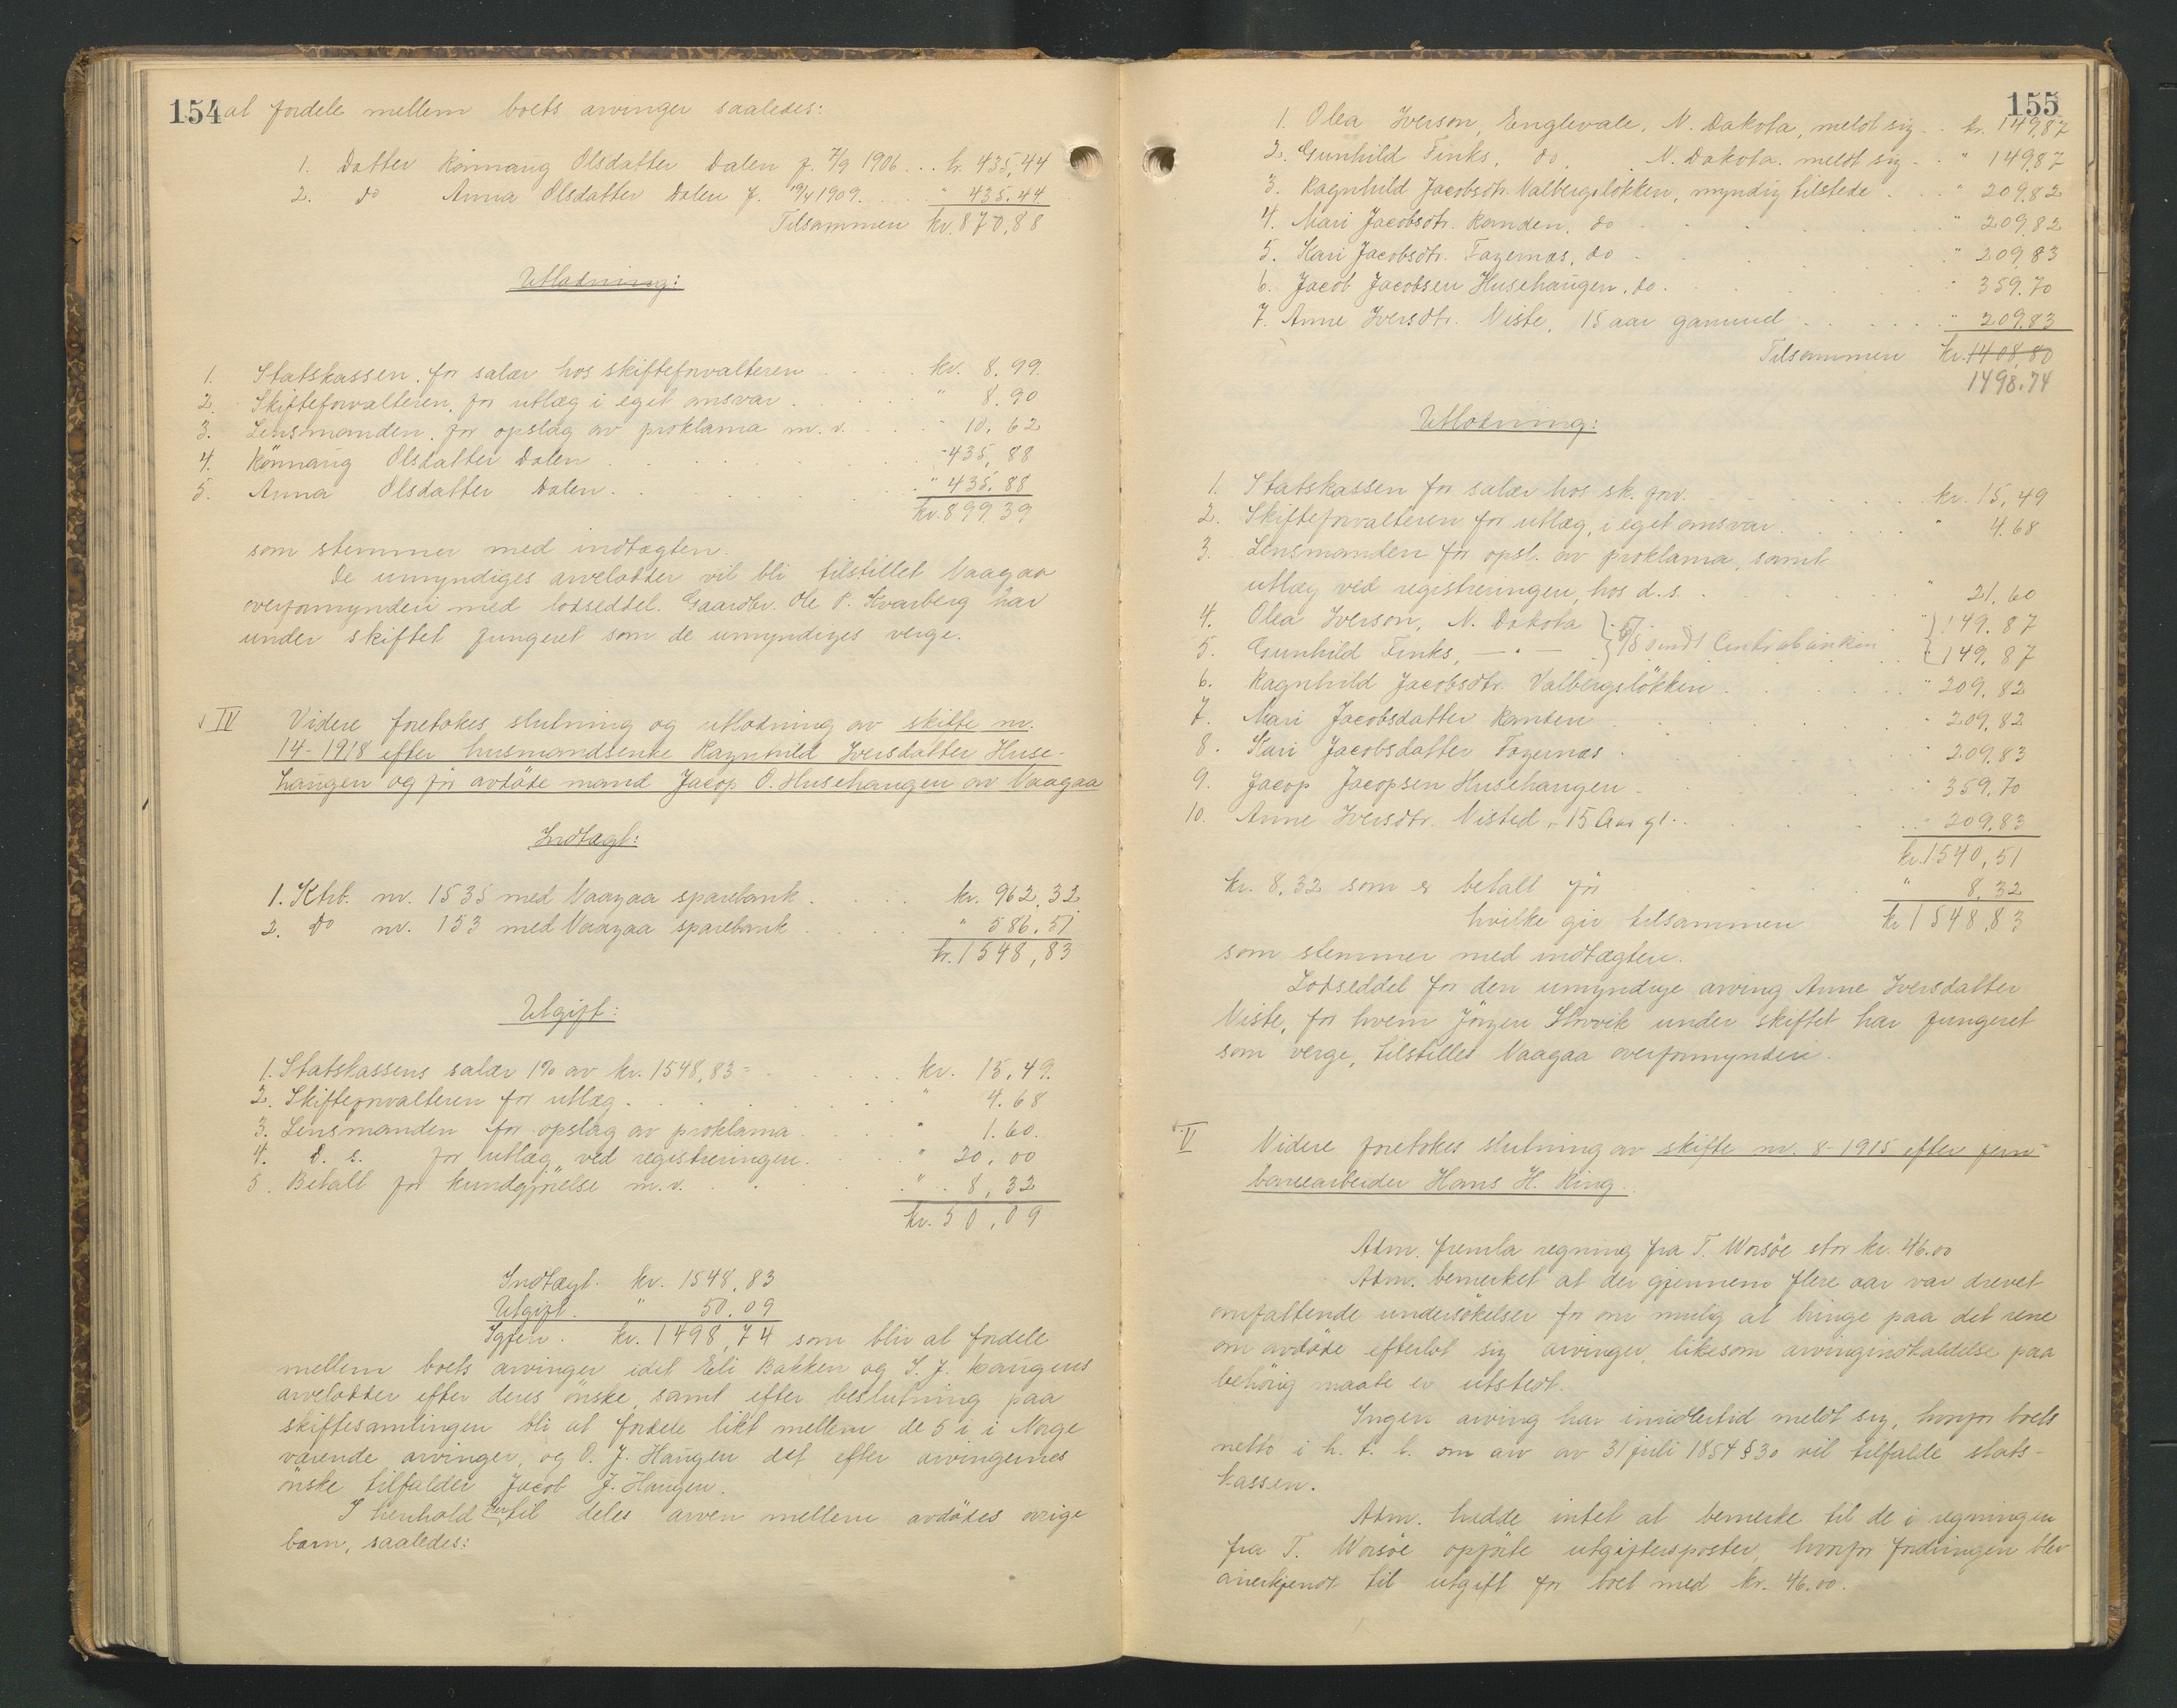 154
at fordele mellem boets arvinger saaledes:
1. Datter Rönnaug Olsdatter Dalen f. 7/9 1906 . . . kr. 435,44
2. do Anna Olsdatter Dalen f. 19/4 1909 . . . " 435.44
Tilsammen kr. 870,88
Utlodning:
1. Statskassen, for salær hos skifteforvalteren . . . . kr. 8.99
2. Skifteforvalteren, for utlæg i eget ansvar . . . . " 8.90
3. Lensmanden, for opslag av proklama m.v. . . . " 10.62
4. Rönnaug Olsdatter Dalen . . . . " 435,88
5. Anna Olsdatter Dalen . . . . " 435.88
kr. 899.39
som stemmer med indtægten.
De umyndiges arvelodder vil bli tilstillet Vaagaa
overformynderi med lodseddel. Gaardbr. Ole P. Kvarberg har
under skiftet fungeret som de umyndiges verge.
IV Videre foretokes slutning og utlodning av skifte nr.
14-1918 efter husmandsenke Ragnhild Iversdatter Huse-
haugen og før avdöde mand Jacop O. Husehaugen av Vaagaa
Indtægt:
1. Ktrb. nr. 1535 med Vaagaa sparebank . . . . kr. 962,32
2. do nr. 153 med Vaagaa sparebank . . . . " 586,51
kr. 1548,83
Utgift:
1. Statskassens salær 1% av kr. 1548,83 = . . . . kr. 15,49.
2. Skifteforvalteren for utlæg . . . . " 4.68
3. Lensmanden for opslag av proklama . . . . " 1.60.
4. d. s. for utlæg ved registreringen . . . . " 20,00
5. Betalt for kundgjørelse m.v. . . . . " 8,32
kr. 50,09
Indtægt. kr. 1548,83
Utgift. " 50.09
Igjen. kr. 1498,74 som blir at fordele
mellem boets arvinger idet Eli Bakken og I. J. Haugens
arvelodder efter deres önske, samt efter beslutning paa
skiftesamlingen bli at fordele likt mellem de 5 i i Norge
værende arvinger, og O. J. Haugen del efter arvingernes
önske tilfalder Jacob J. Haugen.
I henhold hertil deles arven mellem avdödes övrige
barn, saaledes:
155
1. Olea Iverson, Englevale, N. Dakota, meldt sig . . kr. 149,87
2. Gunhild Finks, do, N. Dakota. meldt sig . . " 149,87
3. Ragnhild Jacobsdtr. Valbergsløkken, myndig tilstede . . . " 209,82
4. Mari Jacobsdtr. Randen, do . . . . " 209,82
5. Kari Jacobsdtr. Fagernæs, do . . . . " 209,83
6. Jacob Jacobsen Husehaugen, do . . . . " 359.70
7. Anne Iversdtr. Viste, 15 aar gammel . . . . " 209.83
Tilsammen kr. 1408,80
1498.74
Utlodning:
1. Statskassen for salær hos sk. forv. . . . . kr. 15,49
2. Skifteforvalteren for utlæg, i eget ansvar . . . . " 4.68
3. Lensmanden for opsl. av proklama, samt
utlæg ved registreringen, hos d. s. . . . . " 21,60
4. Olea Iverson, N. Dakota . . " 149.87
5. Gunhild Finks, — " — sendt Centralbanken . . " 149,87
6. Ragnhild Jacobsdtr. Valbergsløkken . . . . " 209,82
7. Mari Jacobsdatter Randen . . . . " 209,82
8. Kari Jacobsdatter Fagernæs . . . . " 209,83
9. Jacop Jacopsen Husehaugen . . . . " 359,70
10. Anne Iversdtr. Visted, 15 Aar gl. . . . . " 209,83
kr. 1540,51
kr. 8,32 som er betalt før . . . . " 8,32
hvilke gir tilsammen kr 1548,83
som stemmer med indtægten.
Lodseddel for den umyndige arving Anne Iversdatter
Viste, for hvem Jörgen Storvik under skiftet har fungeret
som verge, tilstilles Vaagaa overformynderi.
V Videre foretokes slutning av skifte nr. 8-1915 efter jern-
banearbeider Hans H. Ring.
Adm. fremla regning fra T. Worsöe stor kr. 46.00
Adm. bemerket at der gjennem flere aar var drevet
omfattende undersökelser for om mulig at bringe paa det rene
om avdöde efterlot sig arvinger, likesom arvingindkaldelse paa
behörig maate er utstedt.
Ingen arving har imidlertid meldt sig, hvorfor boets
netto i h. t. l. om arv av 31 juli 1854 § 30 vil tilfalde stats-
kassen.
Adm. hadde intet at bemerke til de i regningen
fra T. Worsöe opførte utgiftersposter, hvorfor fordringen blev
anerkjendt til utgift for boet med kr. 46.00.